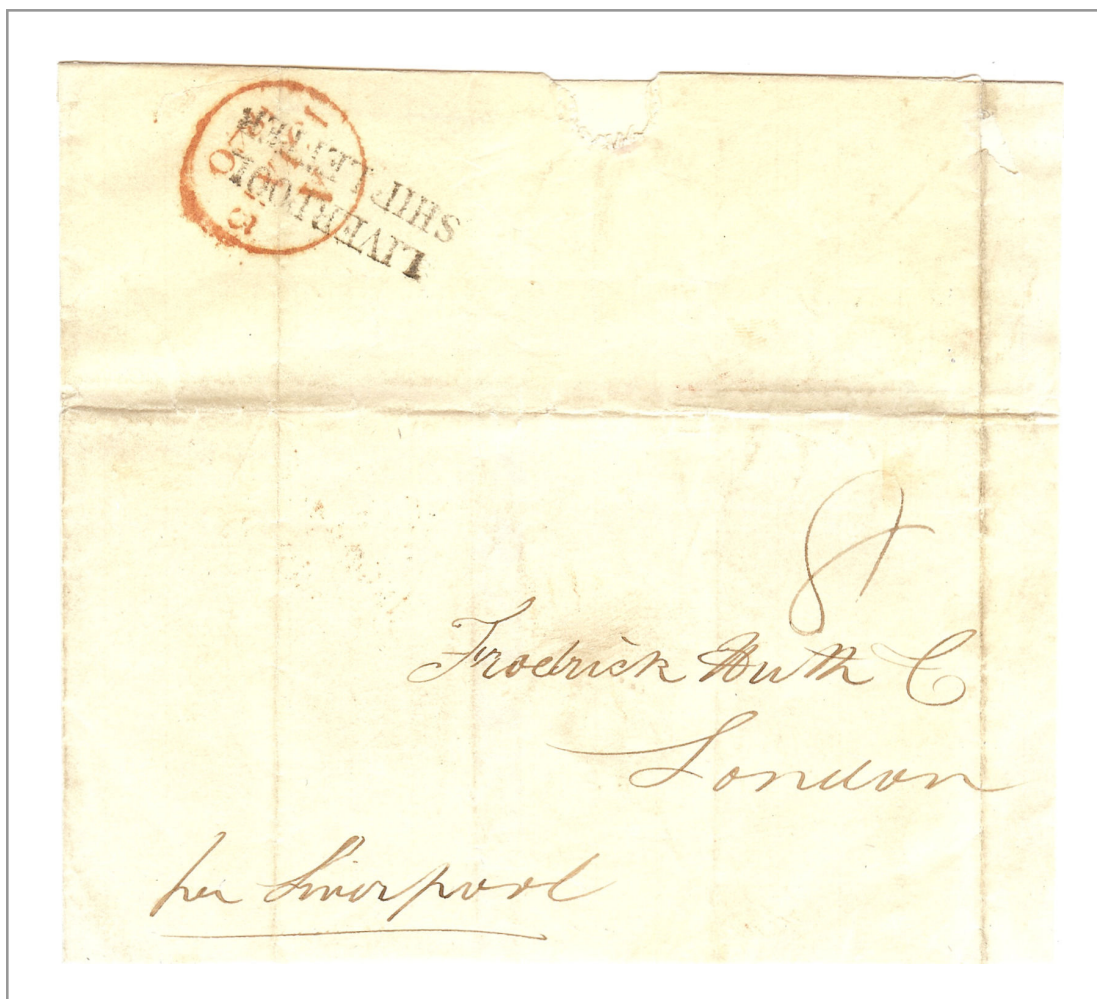 LIVERPOOL
SHIP LETTER
8
Frodrick Huth C
London
per Liverpool